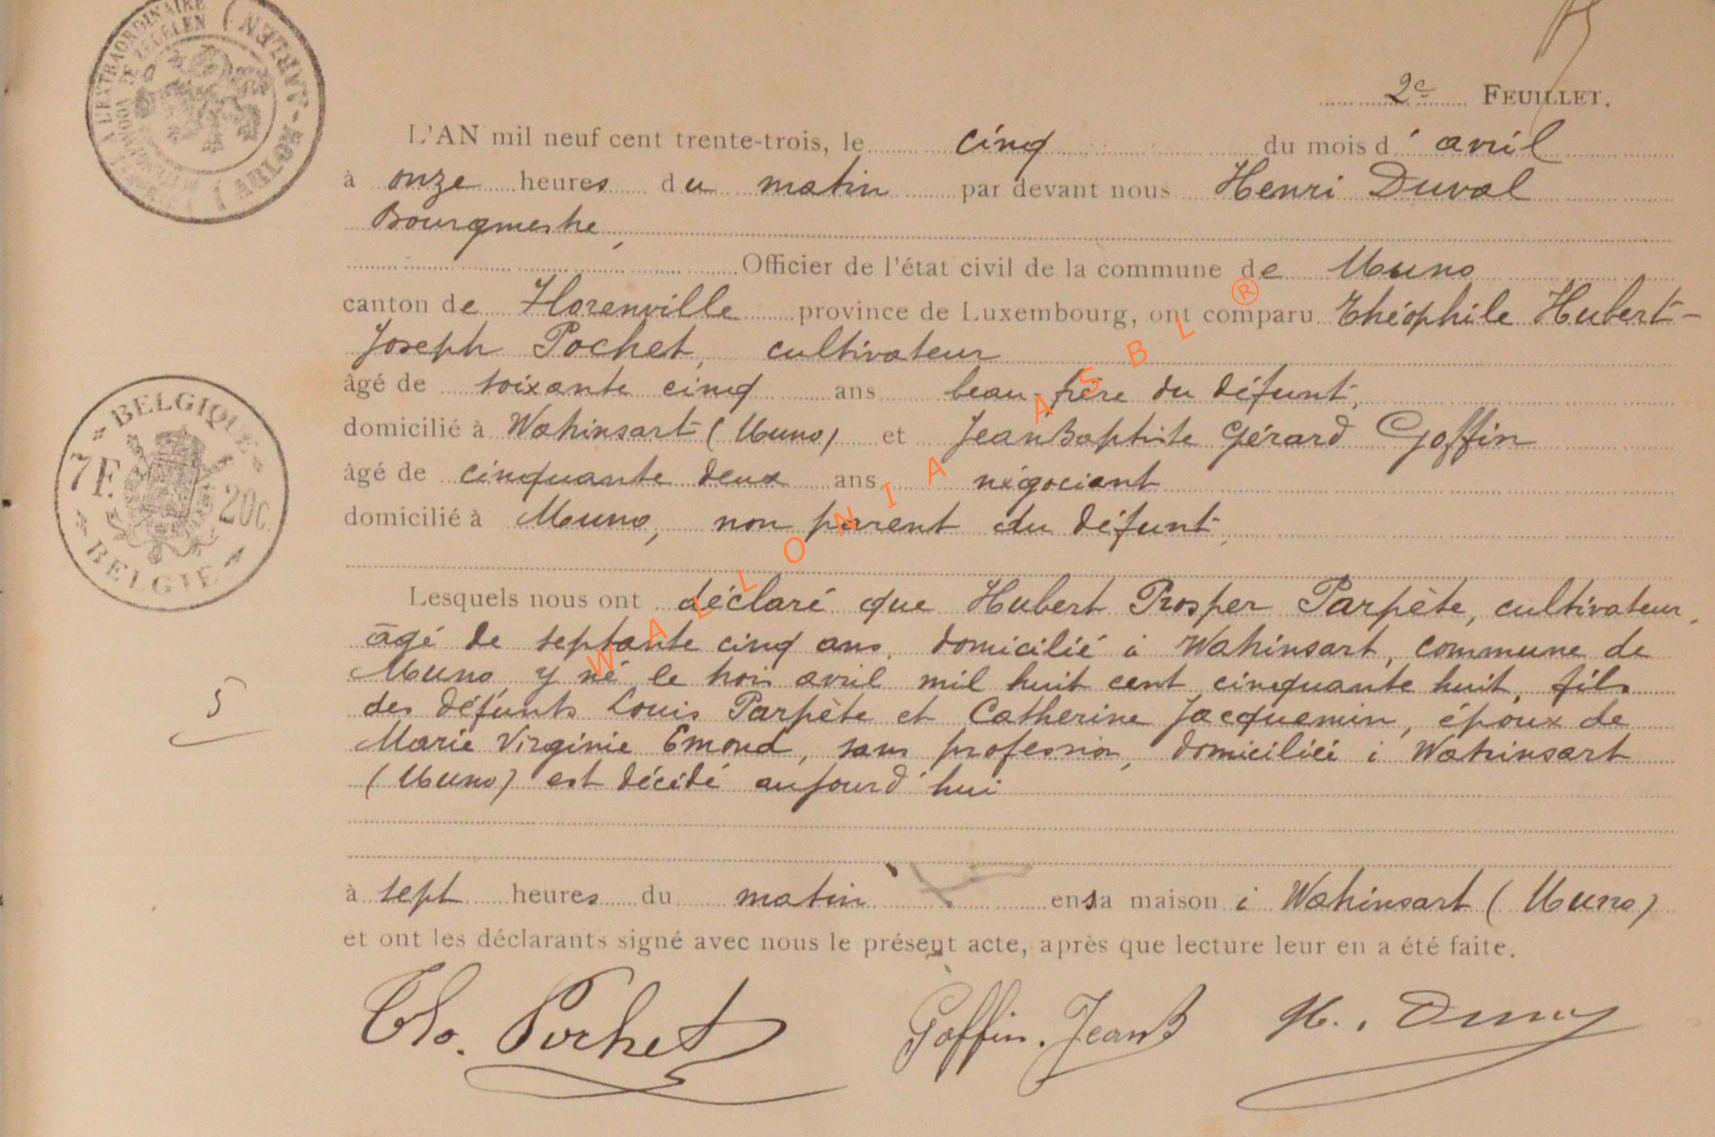 2e FEUILLET.
L'AN mil neuf cent trente-trois, le cinq du mois d' avril
à onze heures du matin par devant nous Henri Duval
Bourgmestre,
Officier de l'état civil de la commune de Muno
canton de Florenville province de Luxembourg, ont comparu Théophile Hubert-
Joseph Pochet, cultivateur
âgé de soixante cinq ans beau-frère du défunt,
domicilié à Wahinsart (Muno) et Jean Baptiste Gérard Goffin
âgé de cinquante deux ans, négociant
domicilié à Muno, non parent du défunt,
Lesquels nous ont déclaré que Hubert Prosper Parpète, cultivateur,
âgé de septante cinq ans, domicilié à Wahinsart, commune de
Muno, y né le trois avril mil huit cent cinquante huit, fils
des défunts Louis Parpète et Catherine Jacquemin, époux de
Marie Virginie Emond, sans profession, domiciliée à Wahinsart
(Muno) est décédé aujourd'hui
5
à sept heures du matin en sa maison à Wahinsart (Muno)
et ont les déclarants signé avec nous le présent acte, après que lecture leur en a été faite.
Théo. Pochet Goffin. Jean B H. Duval
A L'EXTRAORDINAIRE
ARLON - AARLEN
BELGIQUE
7F. 20c.
BELGIE
WALLONIA ASBL ®